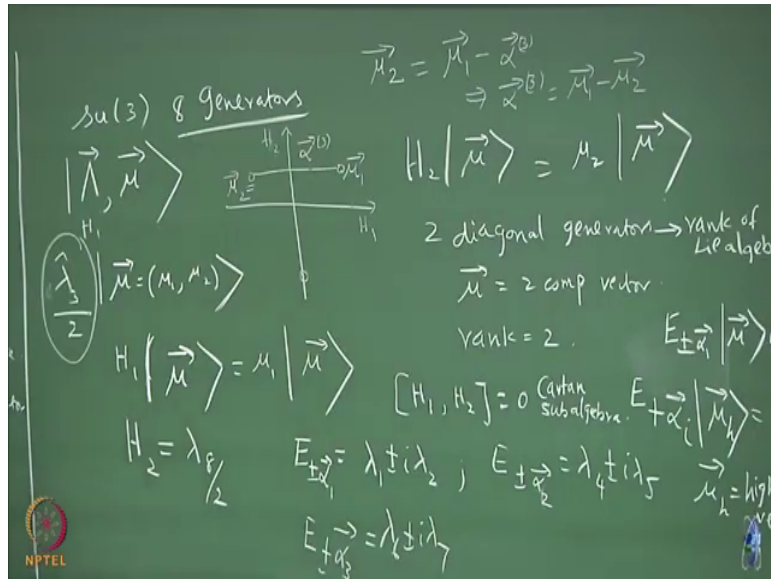 μ⃗₂ = μ⃗₁ − α⃗⁽³⁾
⇒ α⃗⁽³⁾ = μ⃗₁ − μ⃗₂
su(3) 8 Generators
|Λ⃗, μ⃗⟩
H₁
H₂
α⃗⁽³⁾
μ⃗₂ =
μ⃗₁
H₁
H₂|μ⃗⟩ = μ₂|μ⃗⟩
2 diagonal generators → rank of
Lie algeb
λ̂₃/2 |μ⃗ = (μ₁, μ₂)⟩
μ⃗ = 2 comp vector.
rank = 2.
E±α⃗₁|μ⃗⟩
H₁|μ⃗⟩ = μ₁|μ⃗⟩
[H₁, H₂] = 0 Cartan
subalgebra.
E+α⃗ᵢ|μ⃗ₕ⟩ =
H₂ = λ₈/2
E±α⃗₁ = λ₁ ± iλ₂ ; E±α⃗₂ = λ₄ ± iλ₅
μ⃗ₕ = high
E±α⃗₃ = λ₆ ± iλ₇
NPTEL